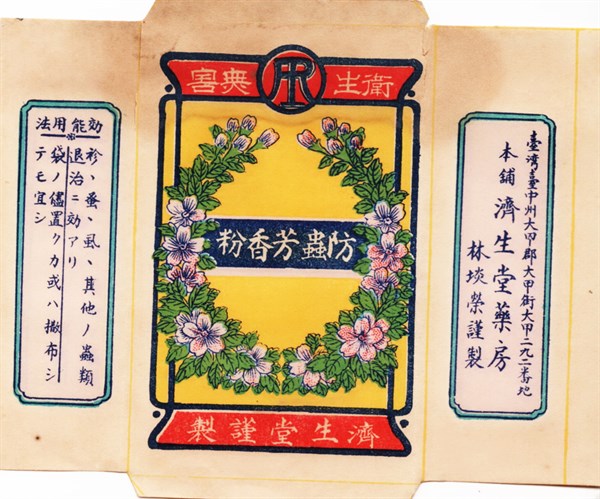 衛生無害
防蟲芳香粉
濟生堂謹製
臺湾臺中州大甲郡大甲街大甲二九二番地
本舖 濟生堂藥房
林埮榮謹製
効能用法
袗、蚤、虱、其他ノ蟲類
退治ニ効アリ
袋ノ儘置クカ或ハ撒布シ
テモ宜シ